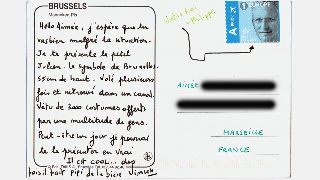 BRUSSELS
Manneken Pis
Hello Aimée, j'espère que tu
vas bien, malgré la situation.
Je te présente le petit
Julien, le symbole de Bruxelles.
55 cm de haut. Volé plusieurs
fois et retrouvé dans un canal.
Vêtu de 1000 costumes offerts
par une multitude de gens.
Peut-être un jour je pourrai
te le présenter en vrai
Il est cool... des
fois il fait pipi de la bière
Notre roi
Philippe
1 EUROPE
Aimée
MARSEILLE
FRANCE